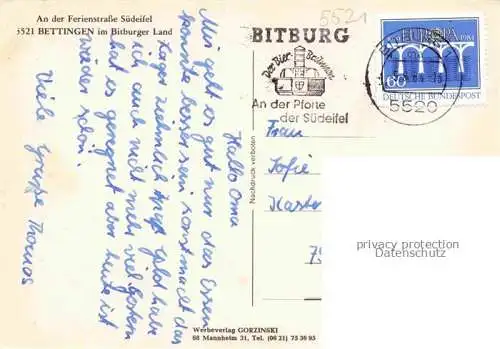 An der Ferienstraße Südeifel
5521 BETTINGEN im Bitburger Land
5521
BITBURG
Der Bier Brunnen
An der Pforte
der Südeifel
5520
EUROPA
1984
60
DEUTSCHE BUNDESPOST
Hallo Oma
Mir geht es gut nur das Essen
könnte besser sein sonst macht das
Lager ziemlich Spaß Geld habe
ich auch nicht mehr viel gestern
hat es geregnet aber heute ist
wieder schön.
Viele Grüße Thomas
Nachdruck verboten
Frau
Sofie
Kaster
privacy protection
Datenschutz
Werbeverlag GORZINSKI
68 Mannheim 31, Tel. (06 21) 75 36 93